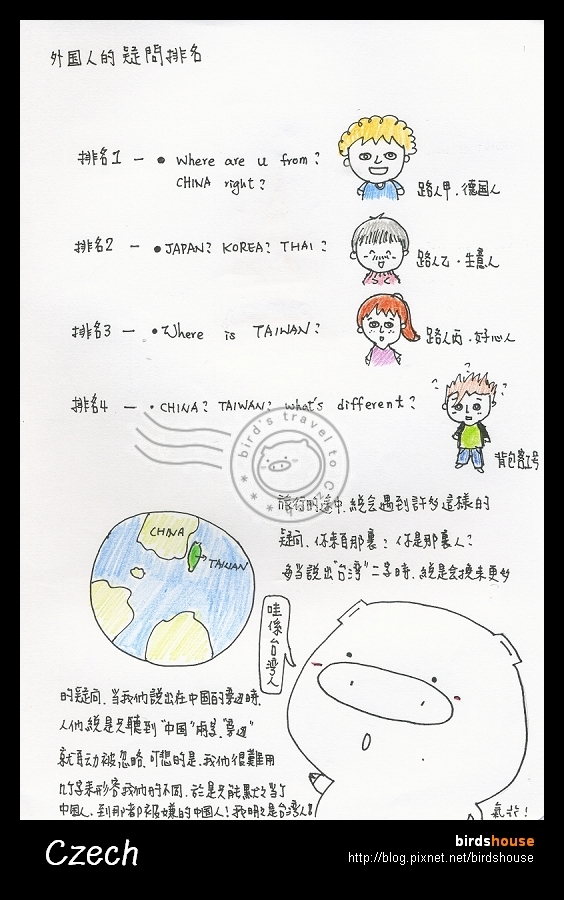 外国人的疑問排名
排名1 — • Where are u from?
CHINA right?
路人甲.德国人
排名2 — • JAPAN? KOREA? THAI?
路人乙.生意人
排名3 — • Where is TAIWAN?
路人丙.好心人
排名4 — • CHINA? TAIWAN? what's different?
背包客1号
bird's travel to
旅行的途中.總会遇到許多這樣的
疑问.你來自那裏?你是那裏人?
每当説出"台湾"二字時.總是会換來更多
CHINA
TAIWAN
哇係台灣人
的疑问.当我们説出在中国的旁边時.
人们總是只聽到"中国"兩字."旁边"
就自动被忽略.可悲的是.我们很難用
几句來形容我们的不同.於是只能默默当了
中国人.到那都被嫌的中国人!我明明是台湾人!!
Czech
birdshouse
http://blog.pixnet.net/birdshouse